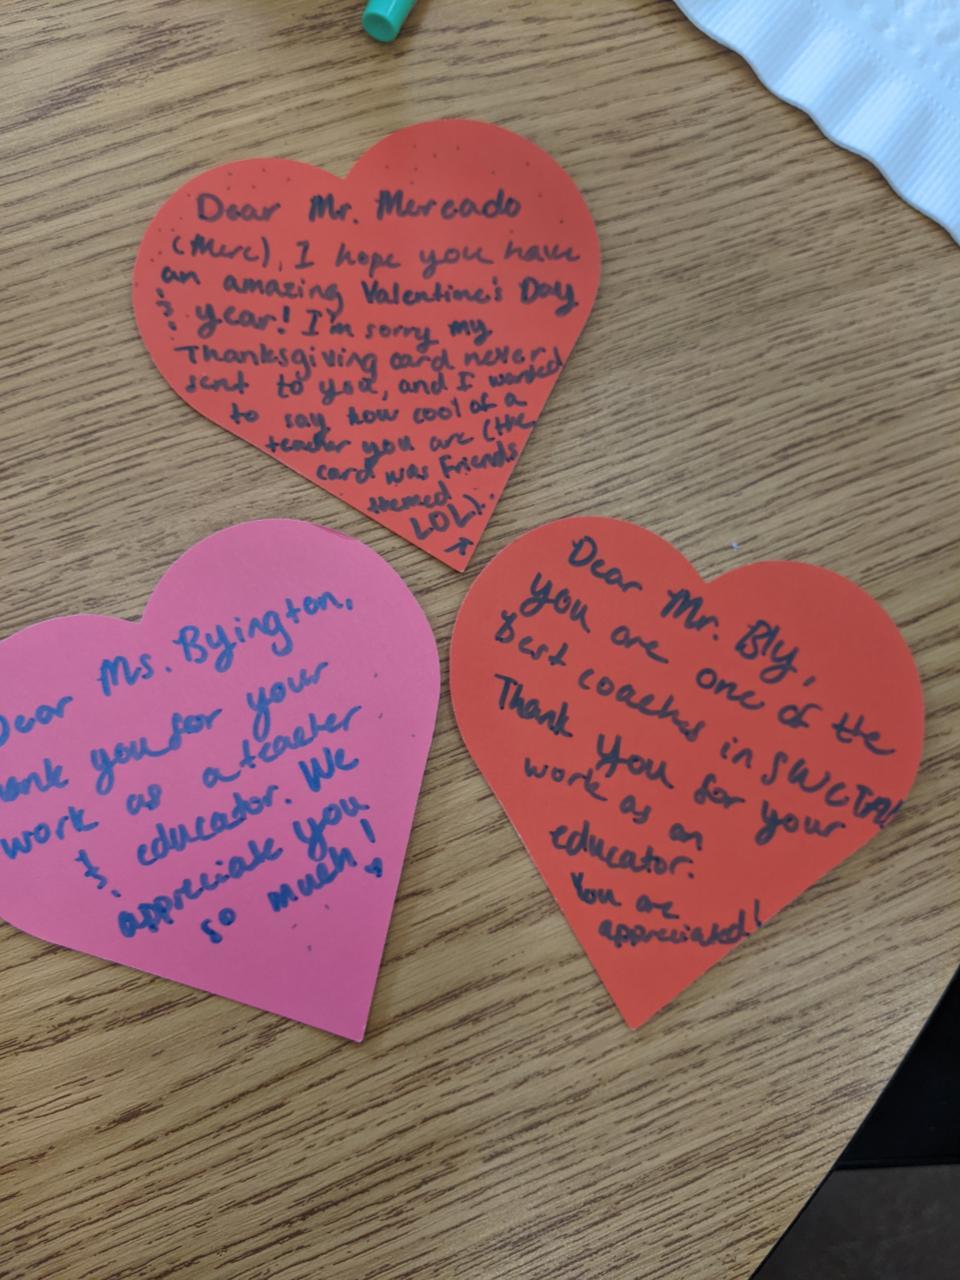 Dear Mr. Mercado
(Merc), I hope you have
an amazing Valentine's Day
& year! I'm sorry my
Thanksgiving card never
sent to you, and I wanted
to say how cool of a
teacher you are (the
card was Friends
themed
LOL).
Dear Ms. Byington,
ank you for your
work as a teacher
& educator. We
appreciate you
so much!
Dear Mr. Bly,
you are one of the
best coaches in SWCTA!
Thank you for your
work as an
educator.
You are
appreciated!